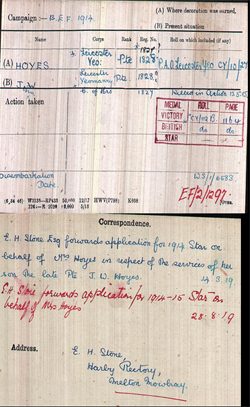 Campaign :- B.E.F. 1914
(A) Where decoration was earned.
(B) Present situation
Name Corps Rank Reg. No. Roll on which included (if any)
(A) HOYES Leicester Yeo: Pte 1828 P.A.O. Leicester Yeo CY/10/27
(B) J.W Leicester Yeomanry Pte 1828
C. of Hrs 1827 Killed in Action 13.5.15
Action taken
MEDAL ROLL PAGE
VICTORY CY/102 B. 1164
BRITISH do do
STAR
Disembarkation Date
W5/1/6583
EF/2/1297
Correspondence.
E. H. Stone Esq forwards application for 1914 Star on
behalf of Mrs Hoyes in respect of the services of her
son the late Pte J. W. Hoyes. 4.3.19
E.H. Stone forwards application for 1914-15 Star on
behalf of Mrs Hoyes
28.8.19
Address.
E. H. Stone,
Harby Rectory,
Melton Mowbray.